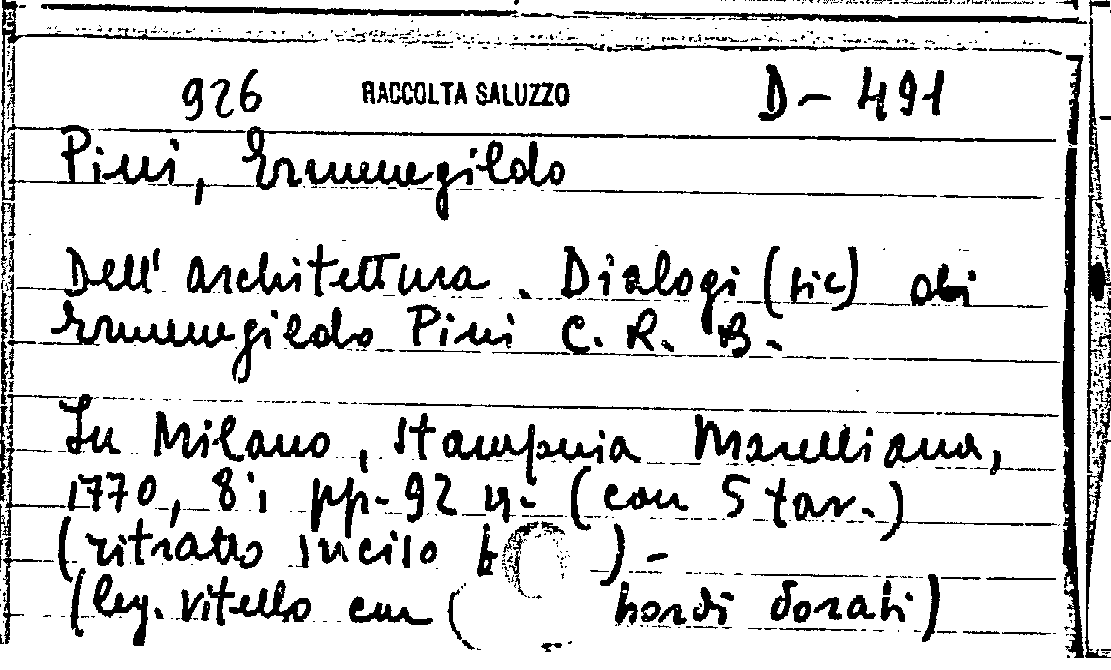 926 RACCOLTA SALUZZO D-491
Pini, Ermenegildo
Dell'architettura. Dialogi (sic) di
Ermenegildo Pini C. R. B.
In Milano, Stamperia Marelliana,
1770, 8°, pp. 92 n. (con 5 tav.)
(ritratto inciso ) -
(leg. vitello con bordi dorati)